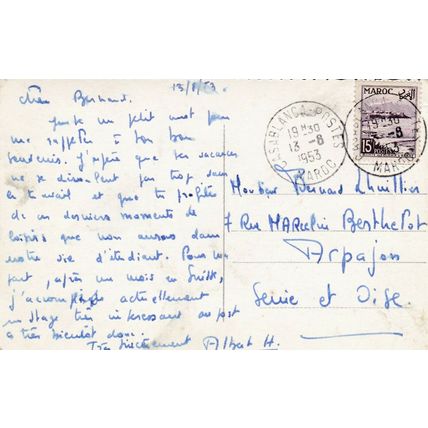 13/8/53
Cher Bernard.
Juste un petit mot pour
me rappeler à ton bon
souvenir. J'espère que tes vacances
ne se déroulent pas trop dans
le travail et que tu profites
de ces derniers moments de
loisirs que nous aurons dans
notre vie d'étudiant. Pour ma
part, après un mois en
j'accomplis actuellement
un stage très intéressant au port
à très bientôt donc.
Très sincèrement Albert H.
CASABLANCA-POSTES
19H30
13-8
1953
MAROC
MAROC
15F
19H30
-8
MAROC
Monsieur Bernard Lhuillier
7 Rue Marcelin Berthelot
Arpajon
Seine et Oise.